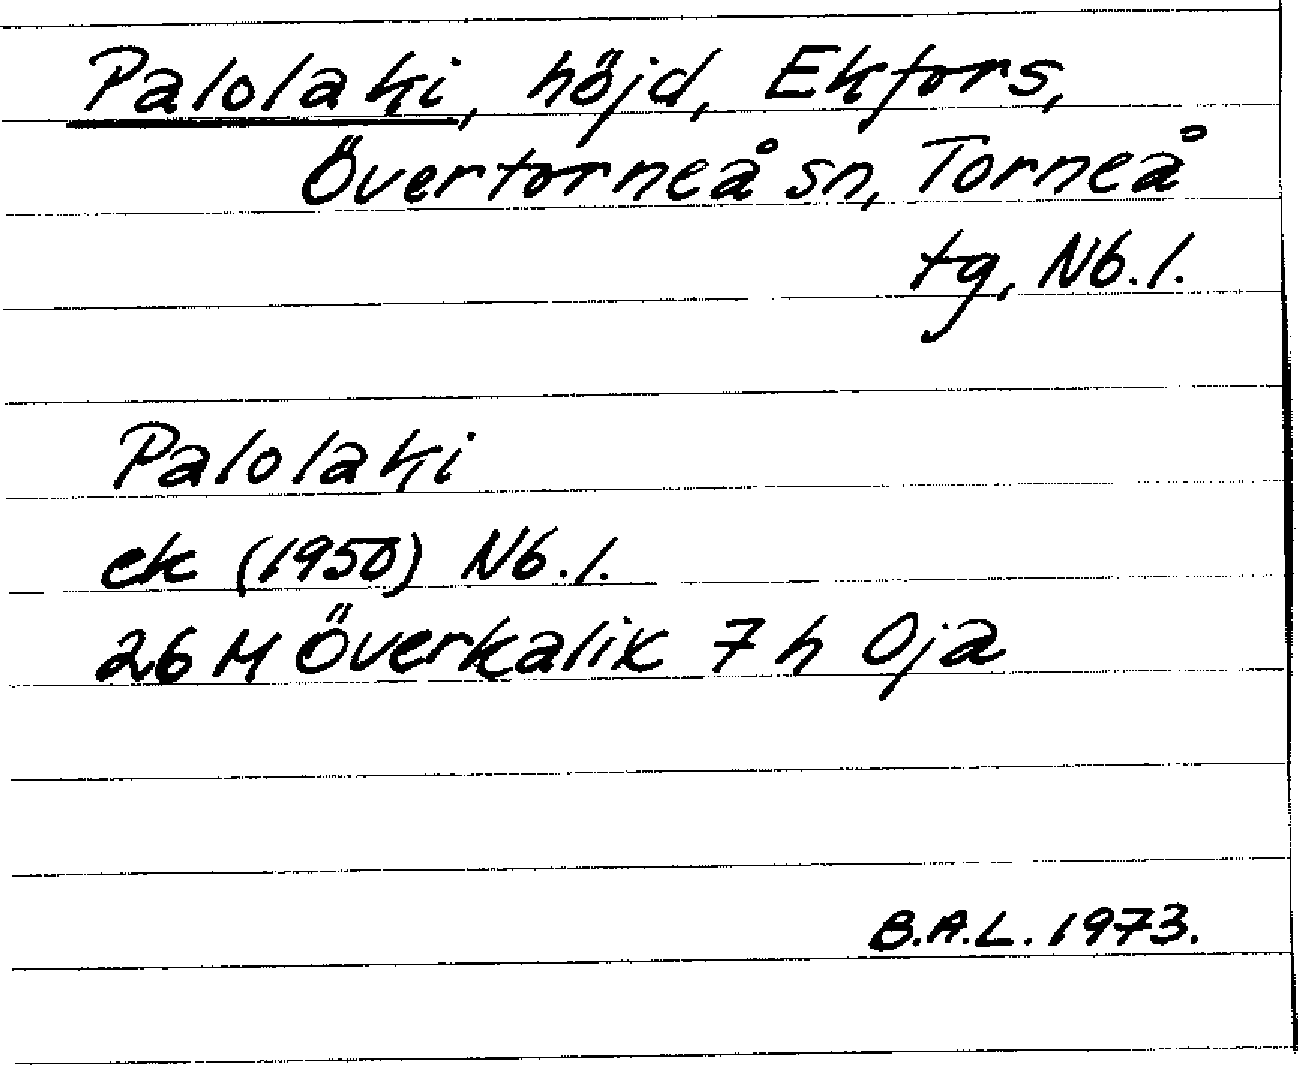 Palolaki, höjd, Ekfors,
Övertorneå sn, Torneå
tg, Nb.l.
Palolaki
ek (1950) Nb.l.
26 M Överkalix 7 h Oja
B.A.L. 1973.